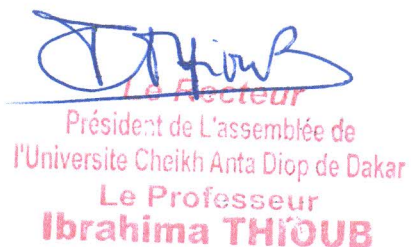 Le Recteur
Président de L'assemblée de
l'Universite Cheikh Anta Diop de Dakar
Le Professeur
Ibrahima THIOUB